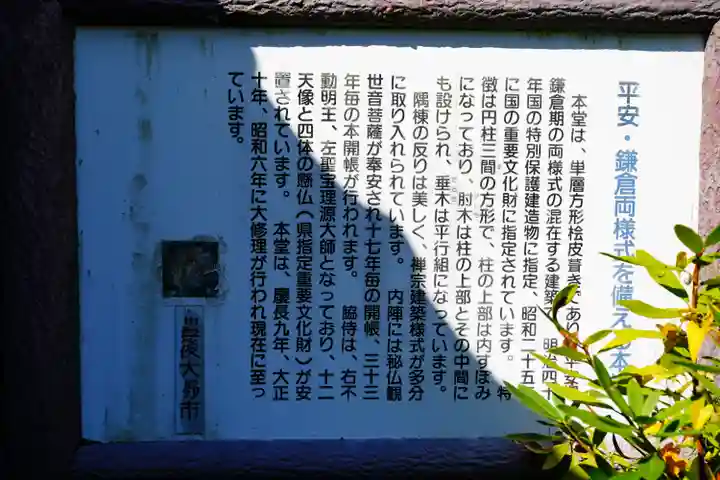 平安・鎌倉両様式を備え 本
本堂は、単層方形桧皮葺きであり 平
鎌倉期の両様式の混在する建築 、明治四十
年国の特別保護建造物に指定、昭和二十五
に国の重要文化財に指定されています。 特
徴は円柱三間の方形で、柱の上部は内すぼみ
になっており、肘木は柱の上部とその中間に
も設けられ、垂木は平行組になっています。
隅棟の反りは美しく、禅宗建築様式が多分
に取り入れられています。 内陣には秘仏観
世音菩薩が奉安され十七年毎の開帳、三十三
年毎の本開帳が行われます。 脇侍は、右不
動明王、左聖宝理源大師となっており、十二
天像と四体の懸仏(県指定重要文化財)が安
置されています。 本堂は、慶長九年、大正
十年、昭和六年に大修理が行われ現在に至っ
ています。
豊後大野市